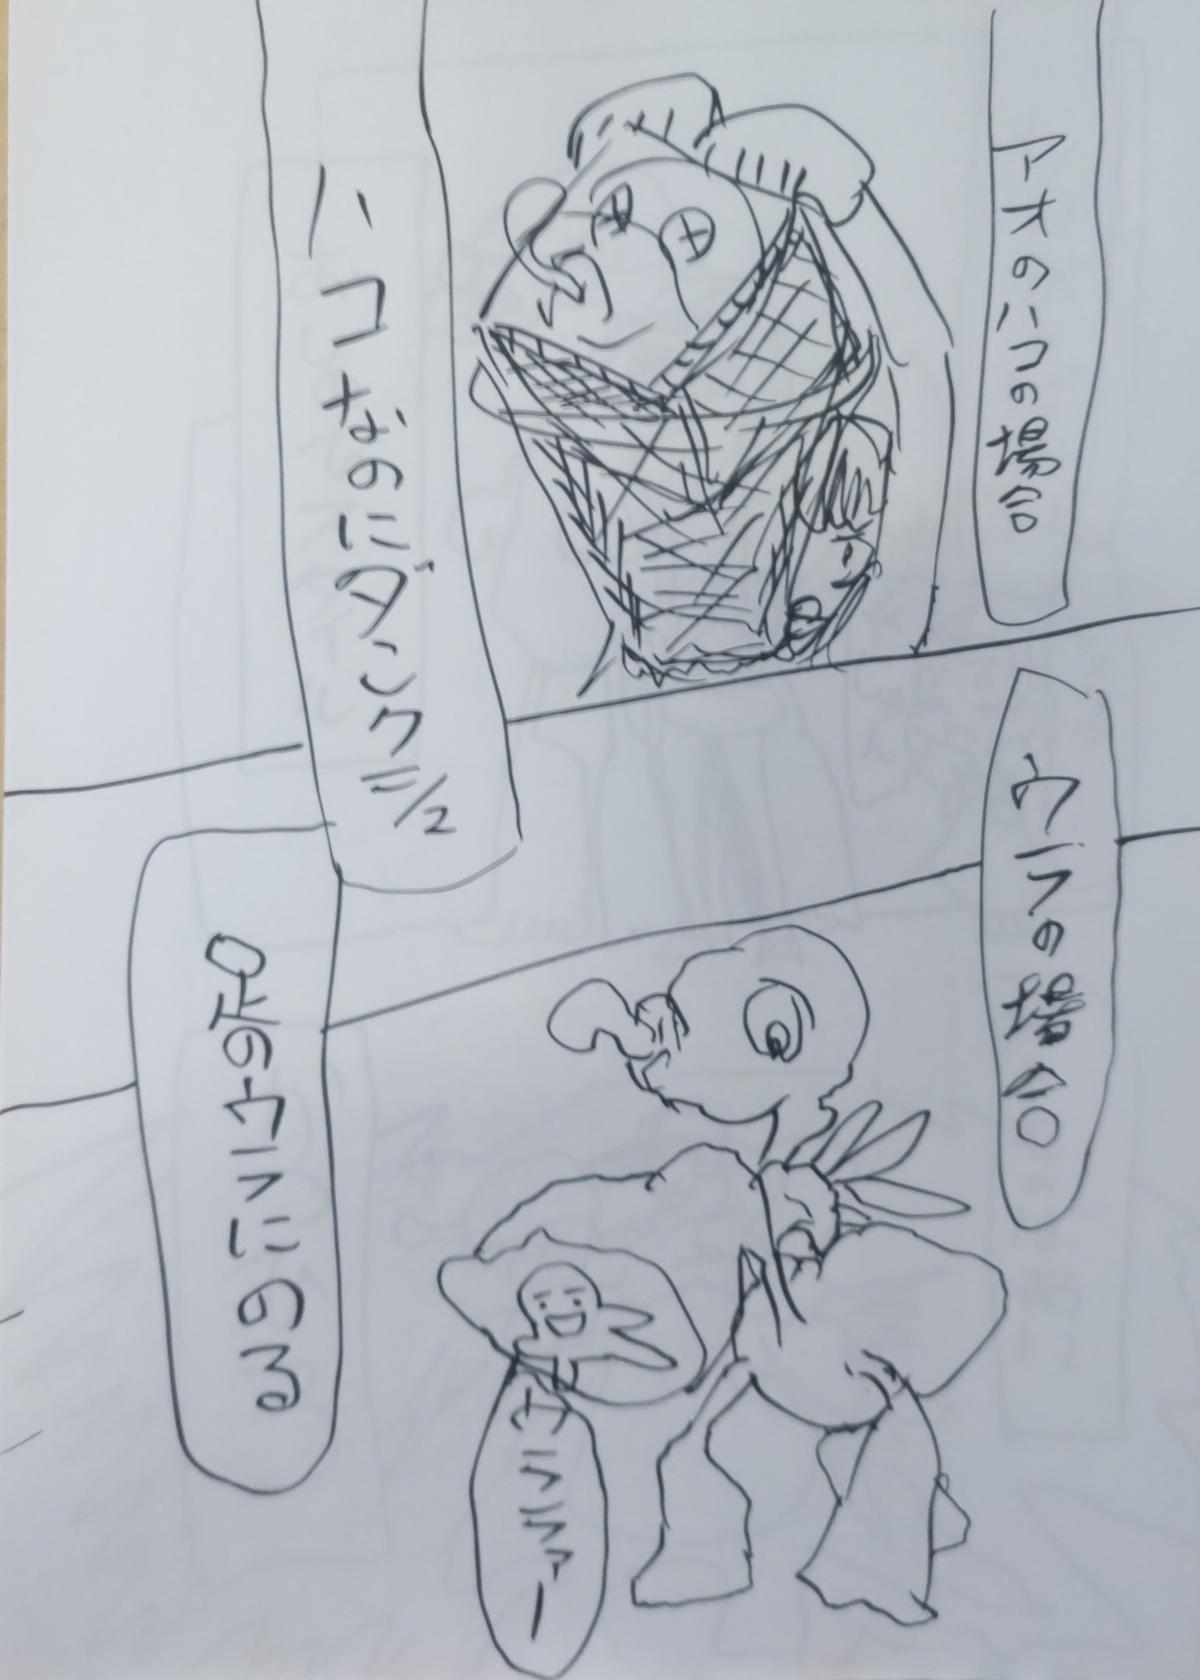 アオのハコの場合
ハコなのにダンクシュ
ウラの場合
足のウラにのる